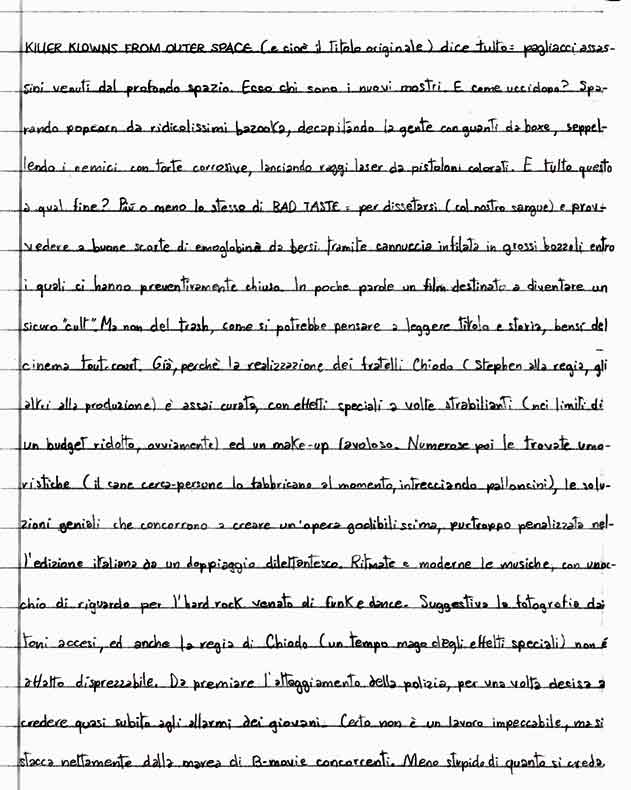 KILLER KLOWNS FROM OUTER SPACE (e cioè il titolo originale) dice tutto: pagliacci assas-
sini venuti dal profondo spazio. Ecco chi sono i nuovi mostri. E come uccidono? Spa-
rando popcorn da ridicolissimi bazooka, decapitando la gente con guanti da boxe, seppel-
lendo i nemici con torte corrosive, lanciando raggi laser da pistoloni colorati. E tutto questo
a qual fine? Più o meno lo stesso di BAD TASTE: per dissetarsi (col nostro sangue) e prov-
vedere a buone scorte di emoglobina da bersi tramite cannuccia infilata in grossi bozzoli entro
i quali ci hanno preventivamente chiuso. In poche parole un film destinato a diventare un
sicuro "cult". Ma non del trash, come si potrebbe pensare a leggere titolo e storia, bensì del
cinema tout-court. Già, perchè la realizzazione dei fratelli Chiodo (Stephen alla regia, gli
altri alla produzione) è assai curata, con effetti speciali a volte strabilianti (nei limiti di
un budget ridotto, ovviamente) ed un make-up favoloso. Numerose poi le trovate umo-
ristiche (il cane cerca-persone lo fabbricano al momento, intrecciando palloncini), le solu-
zioni geniali che concorrono a creare un'opera godibilissima, purtroppo penalizzata nel-
l'edizione italiana da un doppiaggio dilettantesco. Ritmate e moderne le musiche, con un oc-
chio di riguardo per l'hard rock venato di funk e dance. Suggestiva la fotografia dai
toni accesi, ed anche la regia di Chiodo (un tempo mago degli effetti speciali) non è
affatto disprezzabile. Da premiare l'atteggiamento della polizia, per una volta decisa a
credere quasi subito agli allarmi dei giovani. Certo non è un lavoro impeccabile, ma si
stacca nettamente dalla marea di B-movie concorrenti. Meno stupido di quanto si creda.